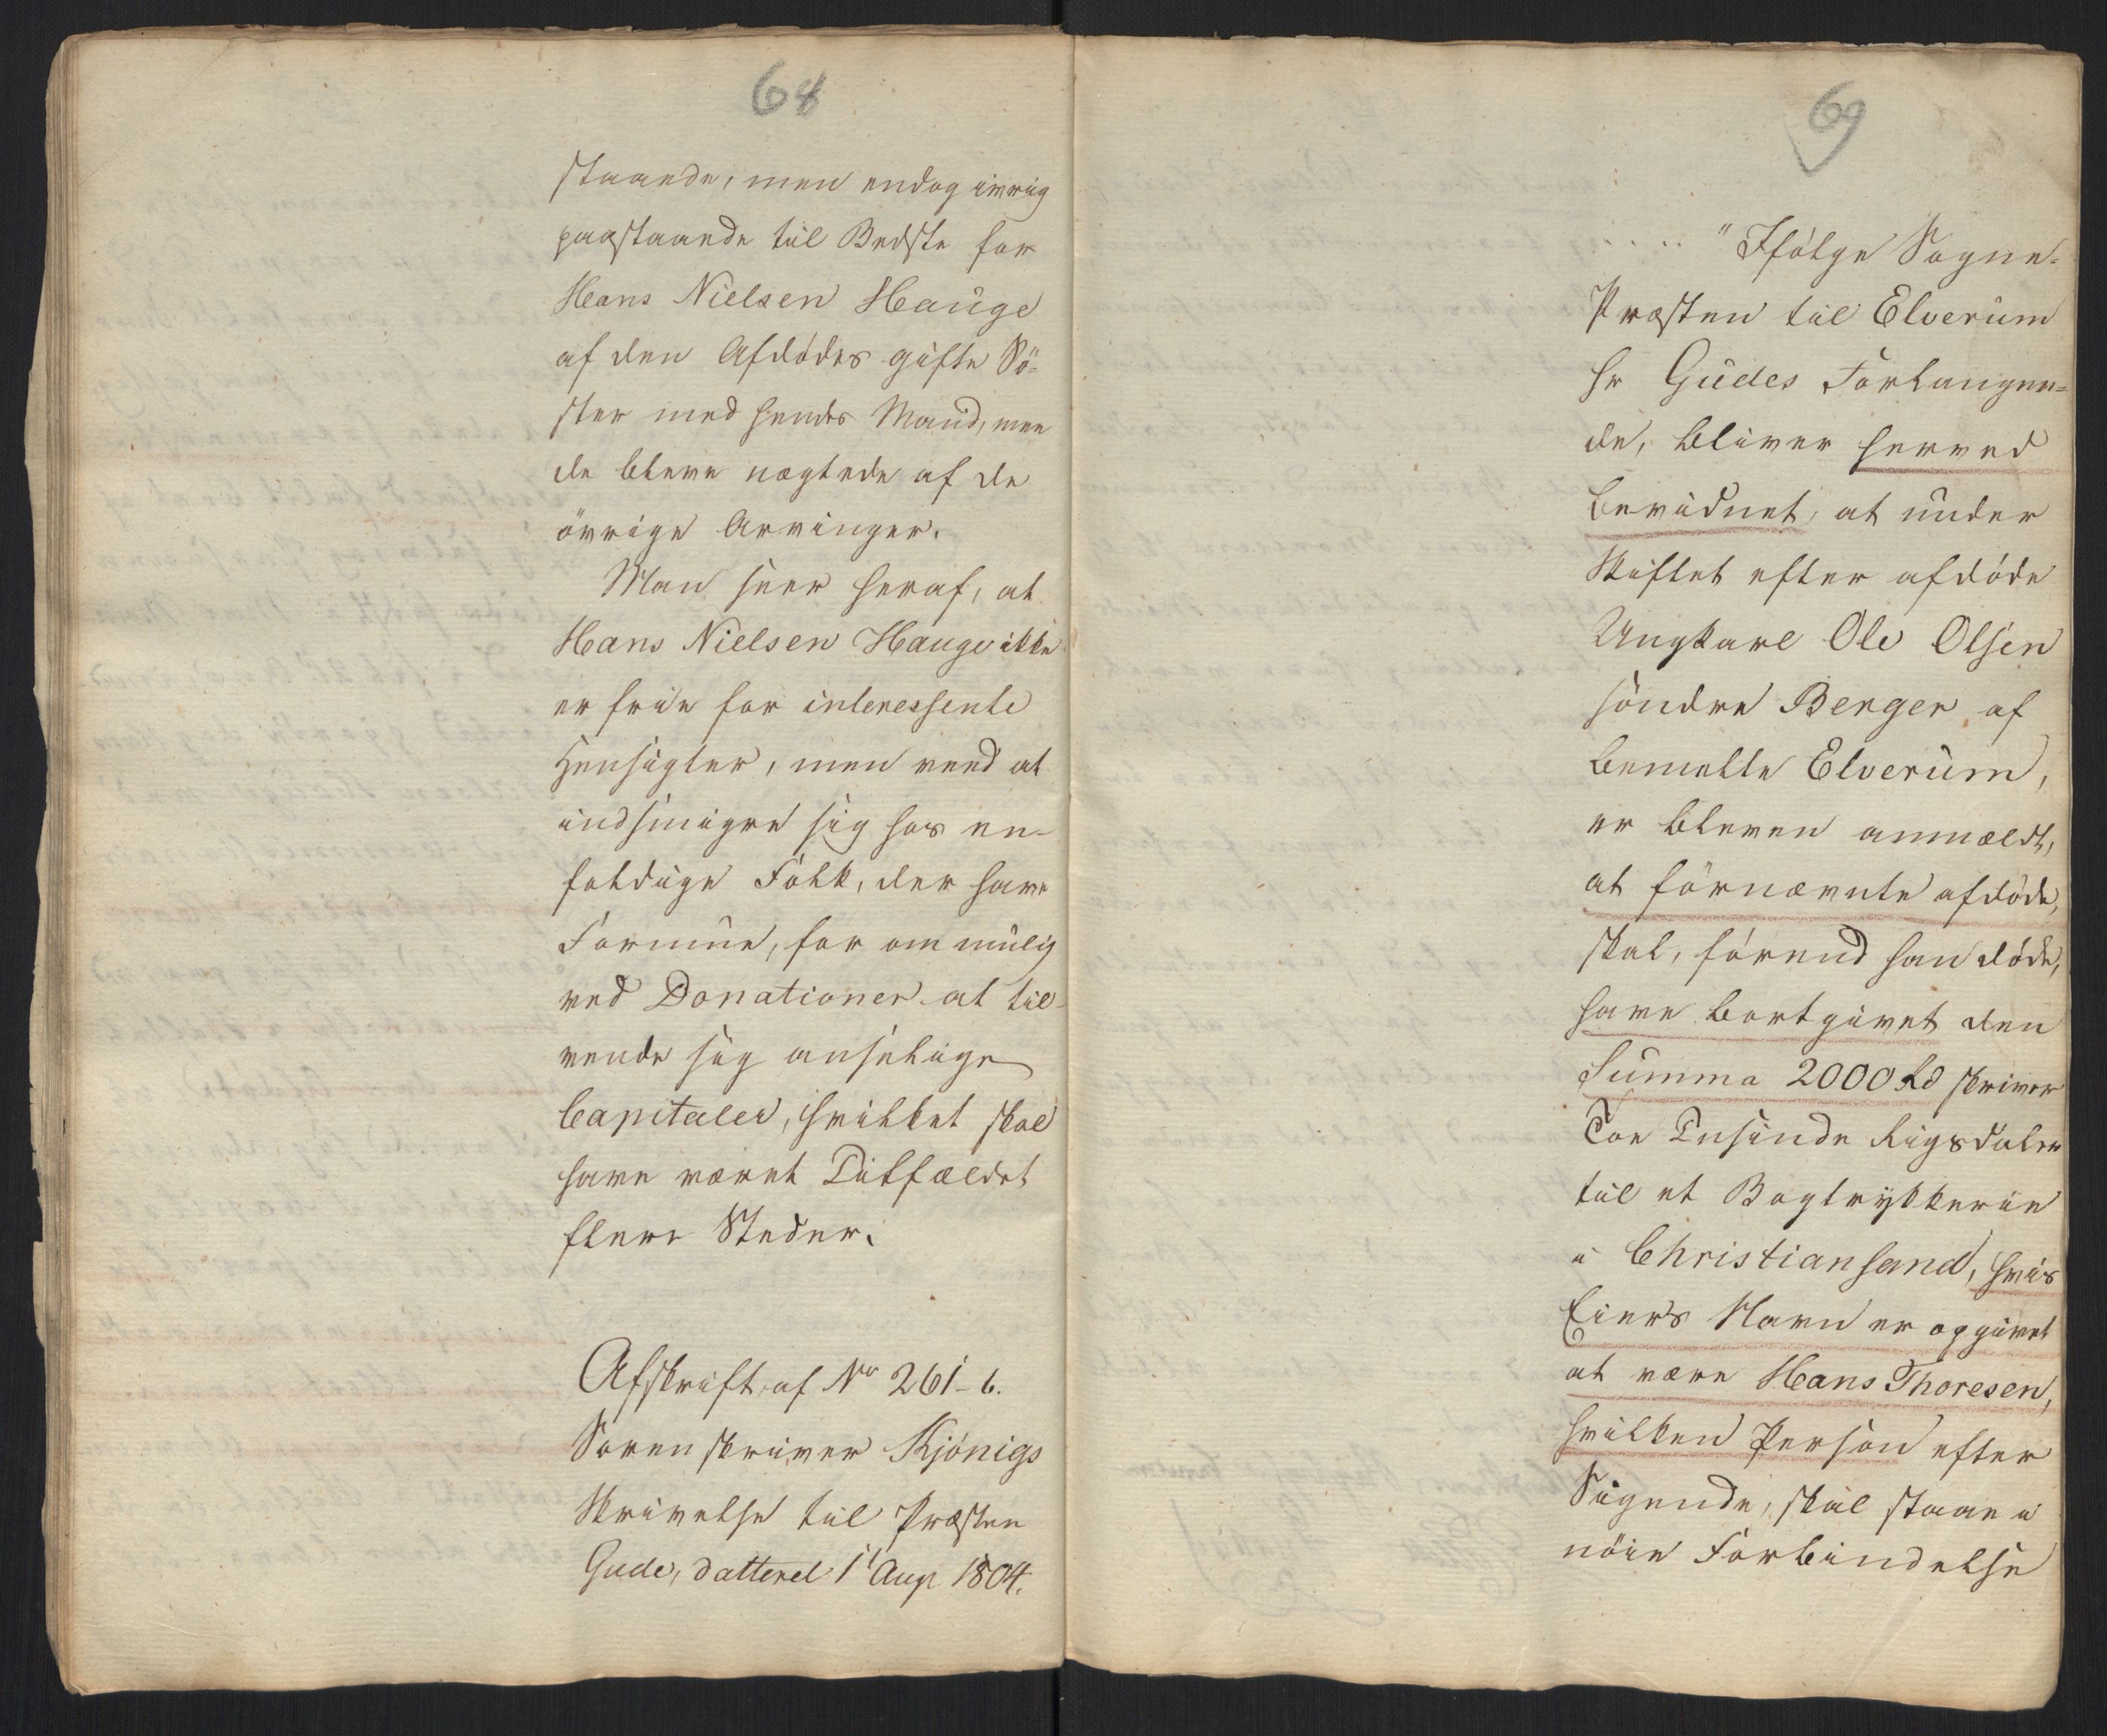 68
staaende, men endog ivrig
paastaaende til Bedste for
Hans Nielsen Hauge
af den Afdødes gifte Sö-
ster med hendes Mand, men
de bleve nægtede af de
övrige Arvinger.
Man seer heraf, at
Hans Nielsen Hauge ikke
er frie for interessente
Hensigter, men veed at
indsmigre sig hos en-
foldige Folk, der have
Formue, for om mulig
ved Donationer at til-
vende sig anselige
Capitaler, hvilket skal
have været Tilfældet
flere Steder.
Afskrift af No 261-6.
Sorenskriver Kjönigs
Skrivelse til Præsten
Gude, datteret 1t Aug 1804.
69
"Ifölge Sogne-
Præsten til Elverum
Hr Gudes Forlangen-
de, bliver herved
bevidnet, at under
Skiftet efter afdöde
Ungkarl Ole Olsen
söndre Berger af
bemelte Elverum,
er bleven anmældt,
at förnævnte afdöde,
skal, förend han döde,
have bortgivet den
Summa 2000 Rd skriver
Toe Tusinde Rigsdaler
til et Bogtrykkerie
i Christiansand, hvis
Eiers Navn er opgivet
at være Hans Thoresen,
hvilken Person efter
Sigende, skal staae i
nöie Forbindelse